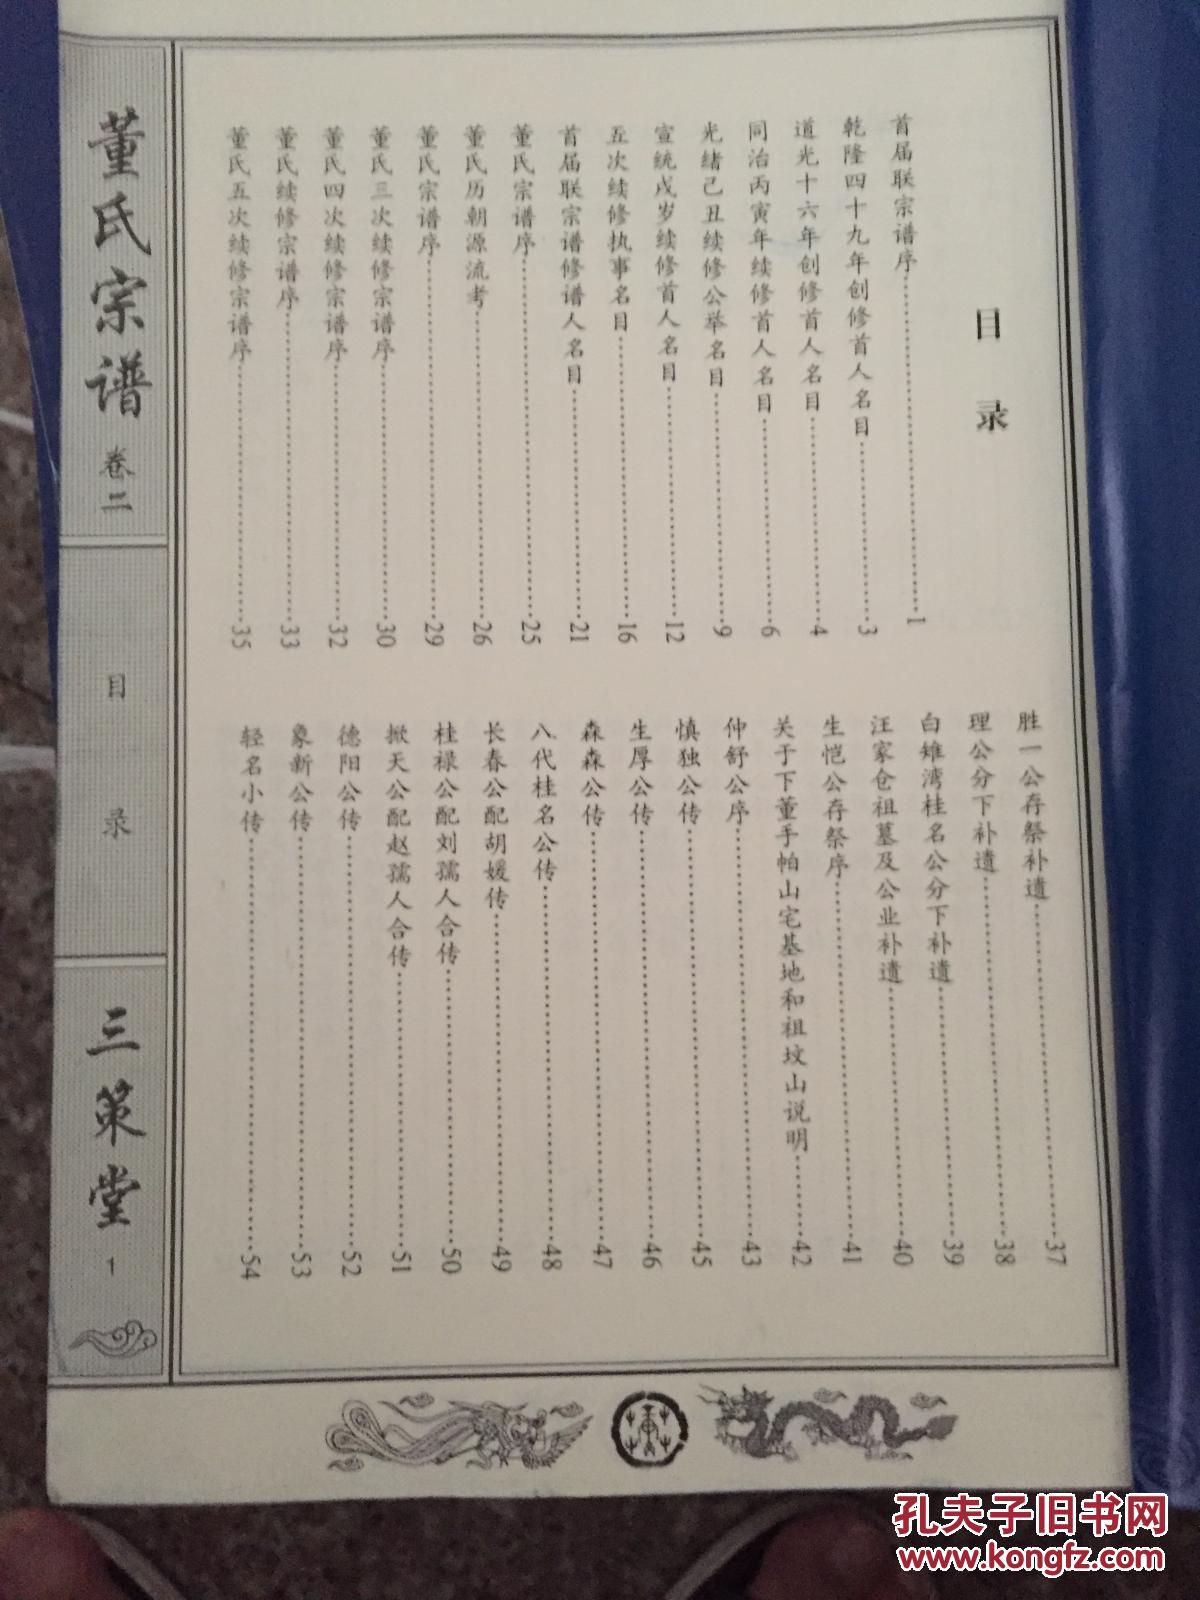 目录
首届联宗谱序 1
乾隆四十九年创修首人名目 3
道光十六年创修首人名目 4
同治丙寅年续修首人名目 6
光绪己丑续修公举名目 9
宣统戌岁续修首人名目 12
五次续修执事名目 16
首届联宗谱修谱人名目 21
董氏宗谱序 25
董氏历朝源流考 26
董氏宗谱序 29
董氏三次续修宗谱序 30
董氏四次续修宗谱序 32
董氏续修宗谱序 33
董氏五次续修宗谱序 35
胜一公存祭补遗 37
理公分下补遗 38
白雉湾桂名公分下补遗 39
汪家仓祖墓及公业补遗 40
生恺公存祭序 41
关于下董手帕山宅基地和祖坟山说明 42
仲舒公序 43
慎独公传 45
生厚公传 46
森森公传 47
八代桂名公传 48
长春公配胡媛传 49
桂禄公配刘孺人合传 50
掀天公配赵孺人合传 51
德阳公传 52
象新公传 53
轻名小传 54
董氏宗谱 卷二
目录
三策堂 1
孔夫子旧书网
www.kongfz.com